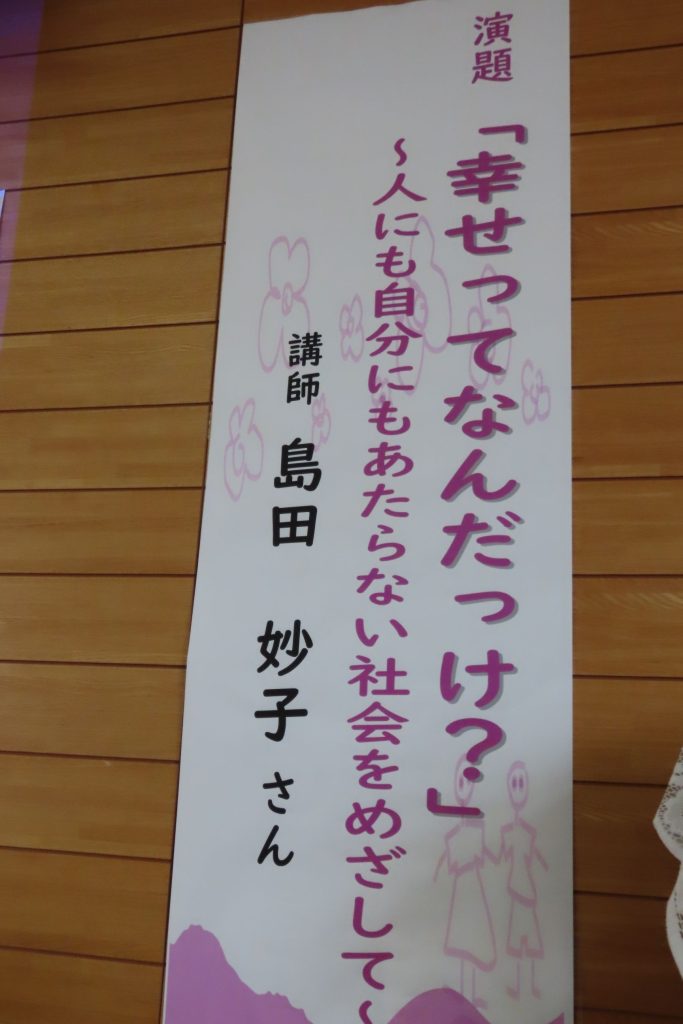 演題
「幸せってなんだっけ?」
～人にも自分にもあたらない社会をめざして～
講師 島田 妙子 さん